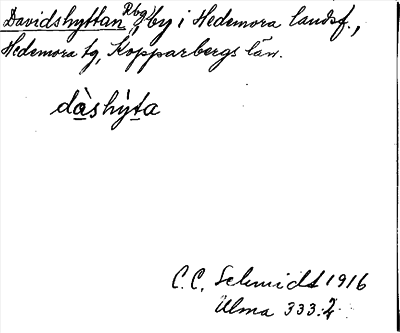 Davidshyttan Rbg, by i Hedemora landsf.,
Hedemora tg, Kopparbergs län.
dàshỳta
C.C. Schmidt 1916
Ulma 333:2